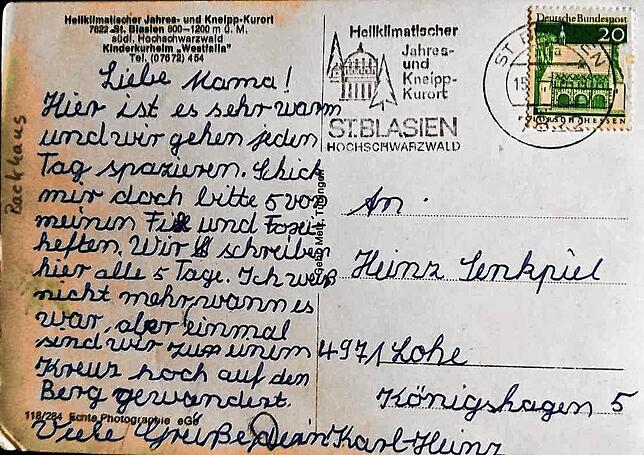 Heilklimatischer Jahres- und Kneipp-Kurort
7822 St. Blasien 800-1200 m ü. M.
südl. Hochschwarzwald
Kinderkurheim „Westfalia"
Tel. (07672) 454
Liebe Mama!
Hier ist es sehr warm
und wir gehen jeden
Tag spazieren. Schick
mir doch bitte 5 von
meinen Fix und Foxi-
heften. Wir schreiben
hier alle 5 Tage. Ich weiß
nicht mehr, wann es
war, aber einmal
sind wir zu einem
Kreuz hoch auf den
Berg gewandert.
118/284 Echte Photographie
Viele Grüße Dein Karl-Heinz
Backhaus
Gebr. Metz, Tübingen
Heilklimatischer
Jahres-
und
Kneipp-
Kurort
ST. BLASIEN
HOCHSCHWARZWALD
Deutsche Bundespost
20
LORSCH/HESSEN
An
Heinz Senkpiel
4971 Lohe
Königshagen 5